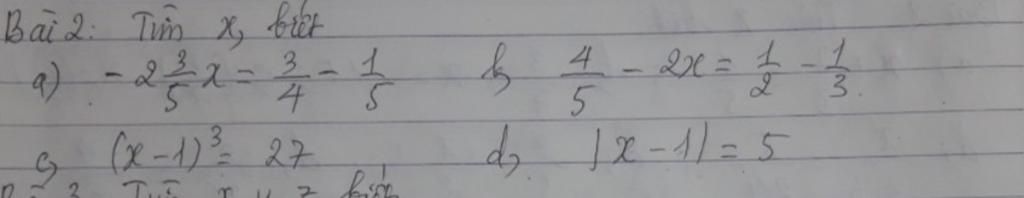 Bài 2: Tìm x, biết
a) -2 3/5 x = 3/4 - 1/5 b, 4/5 - 2x = 1/2 - 1/3.
c, (x-1)³ = 27 d, |x-1| = 5